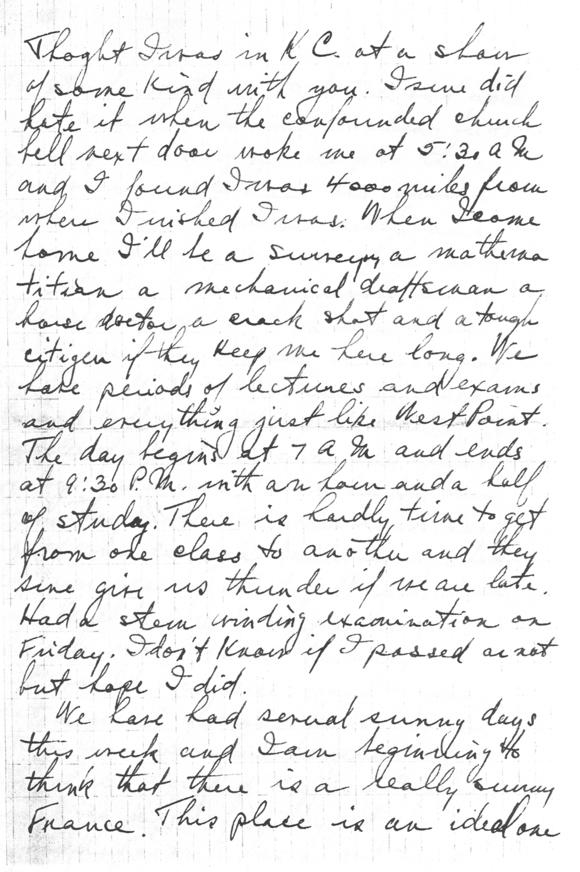 Thoght I was in K C. at a show
of some kind with you. I sure did
hate it when the confounded church
bell next door woke me at 5:30 A M
and I found I was 4000 miles from
where I wished I was. When I come
home I'll be a surveyor a mathema
titian a mechanical draftsman a
horse doctor a crack shot and a tough
citizen if they keep me here long. We
have periods of lectures and exams
and everything just like West Point.
The day begins at 7 A M and ends
at 9:30 P.M. with an hour and a half
of study. There is hardly time to get
from one class to another and they
sure give us thunder if we are late.
Had a stem winding examination on
Friday. I don't know if I passed or not
but hope I did.
We have had several sunny days
this week and I am beginning to
think that there is a really sunny
France. This place is an ideal one